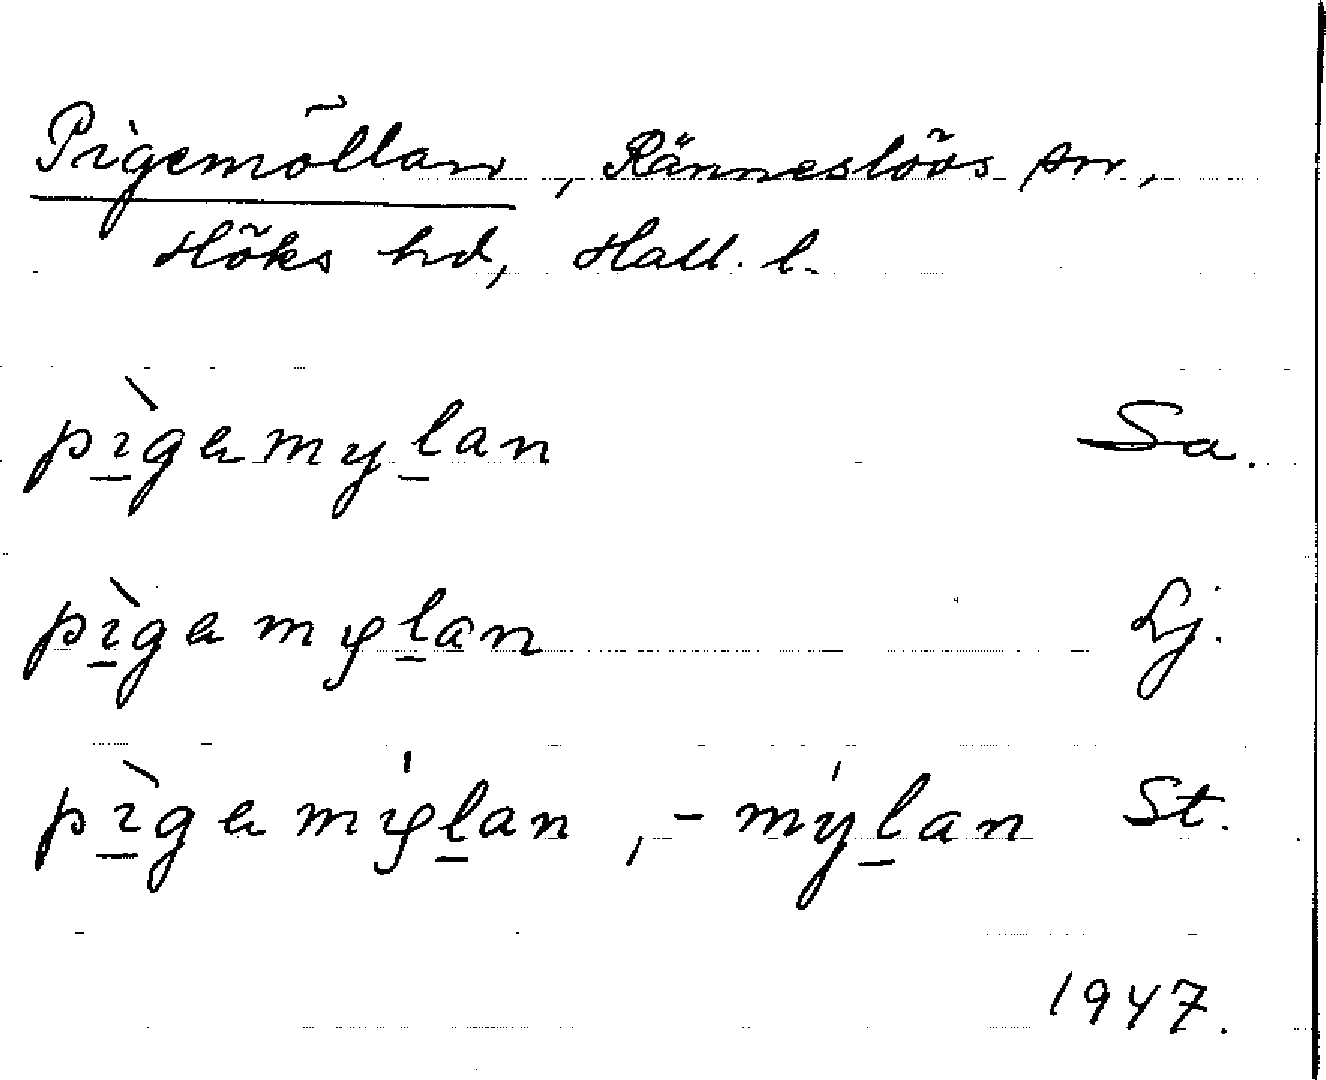 Pigemöllan, Ränneslövs sn,
Höks hd, Hall. l.
pìgamylan Sa.
pìgamylan Lj.
pìgamýlan, -mýlan St.
1947.